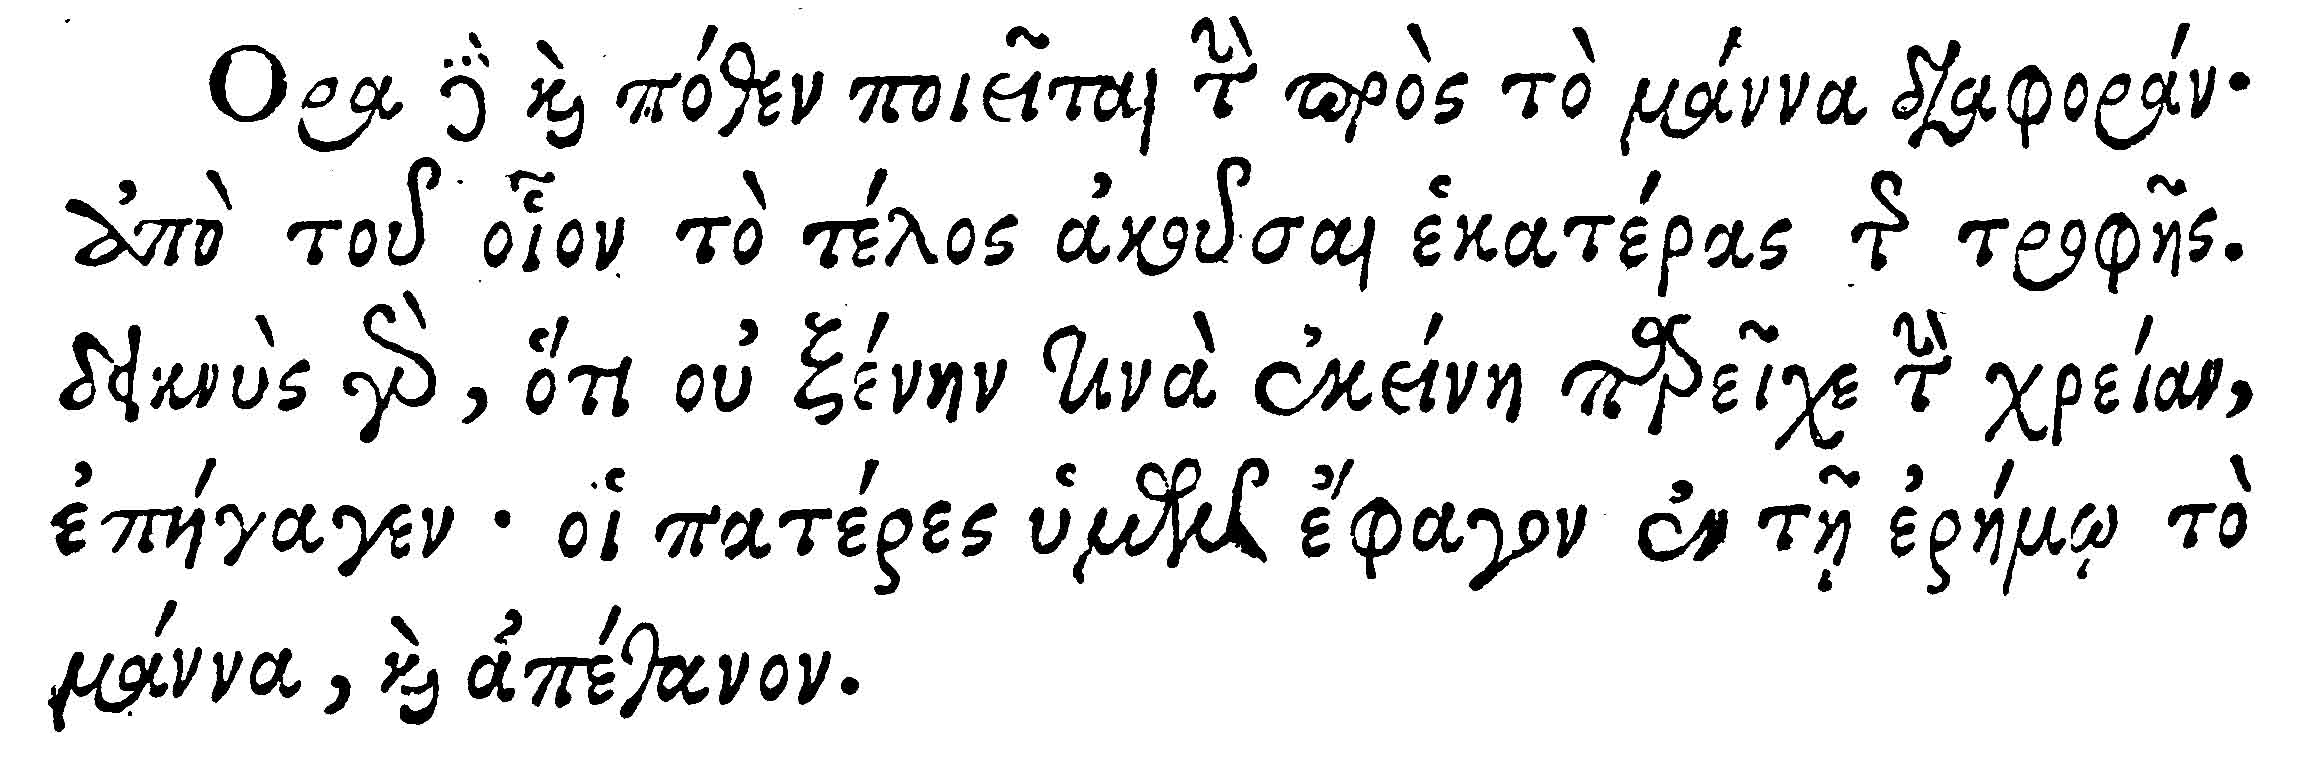 Ορα δὲ καὶ πόθεν ποιεῖται τὴν πρὸς τὸ μάννα διαφοράν·
ἀπὸ τοῦ οἷον τὸ τέλος ἀκοῦσαι ἑκατέρας τῆς τροφῆς.
δεικνὺς γὰρ, ὅτι οὐ ξένην τινὰ ἐκείνη παρεῖχε τὴν χρείαν,
ἐπήγαγεν· οἱ πατέρες ὑμῶν ἔφαγον ἐν τῇ ἐρήμῳ τὸ
μάννα, καὶ ἀπέθανον.